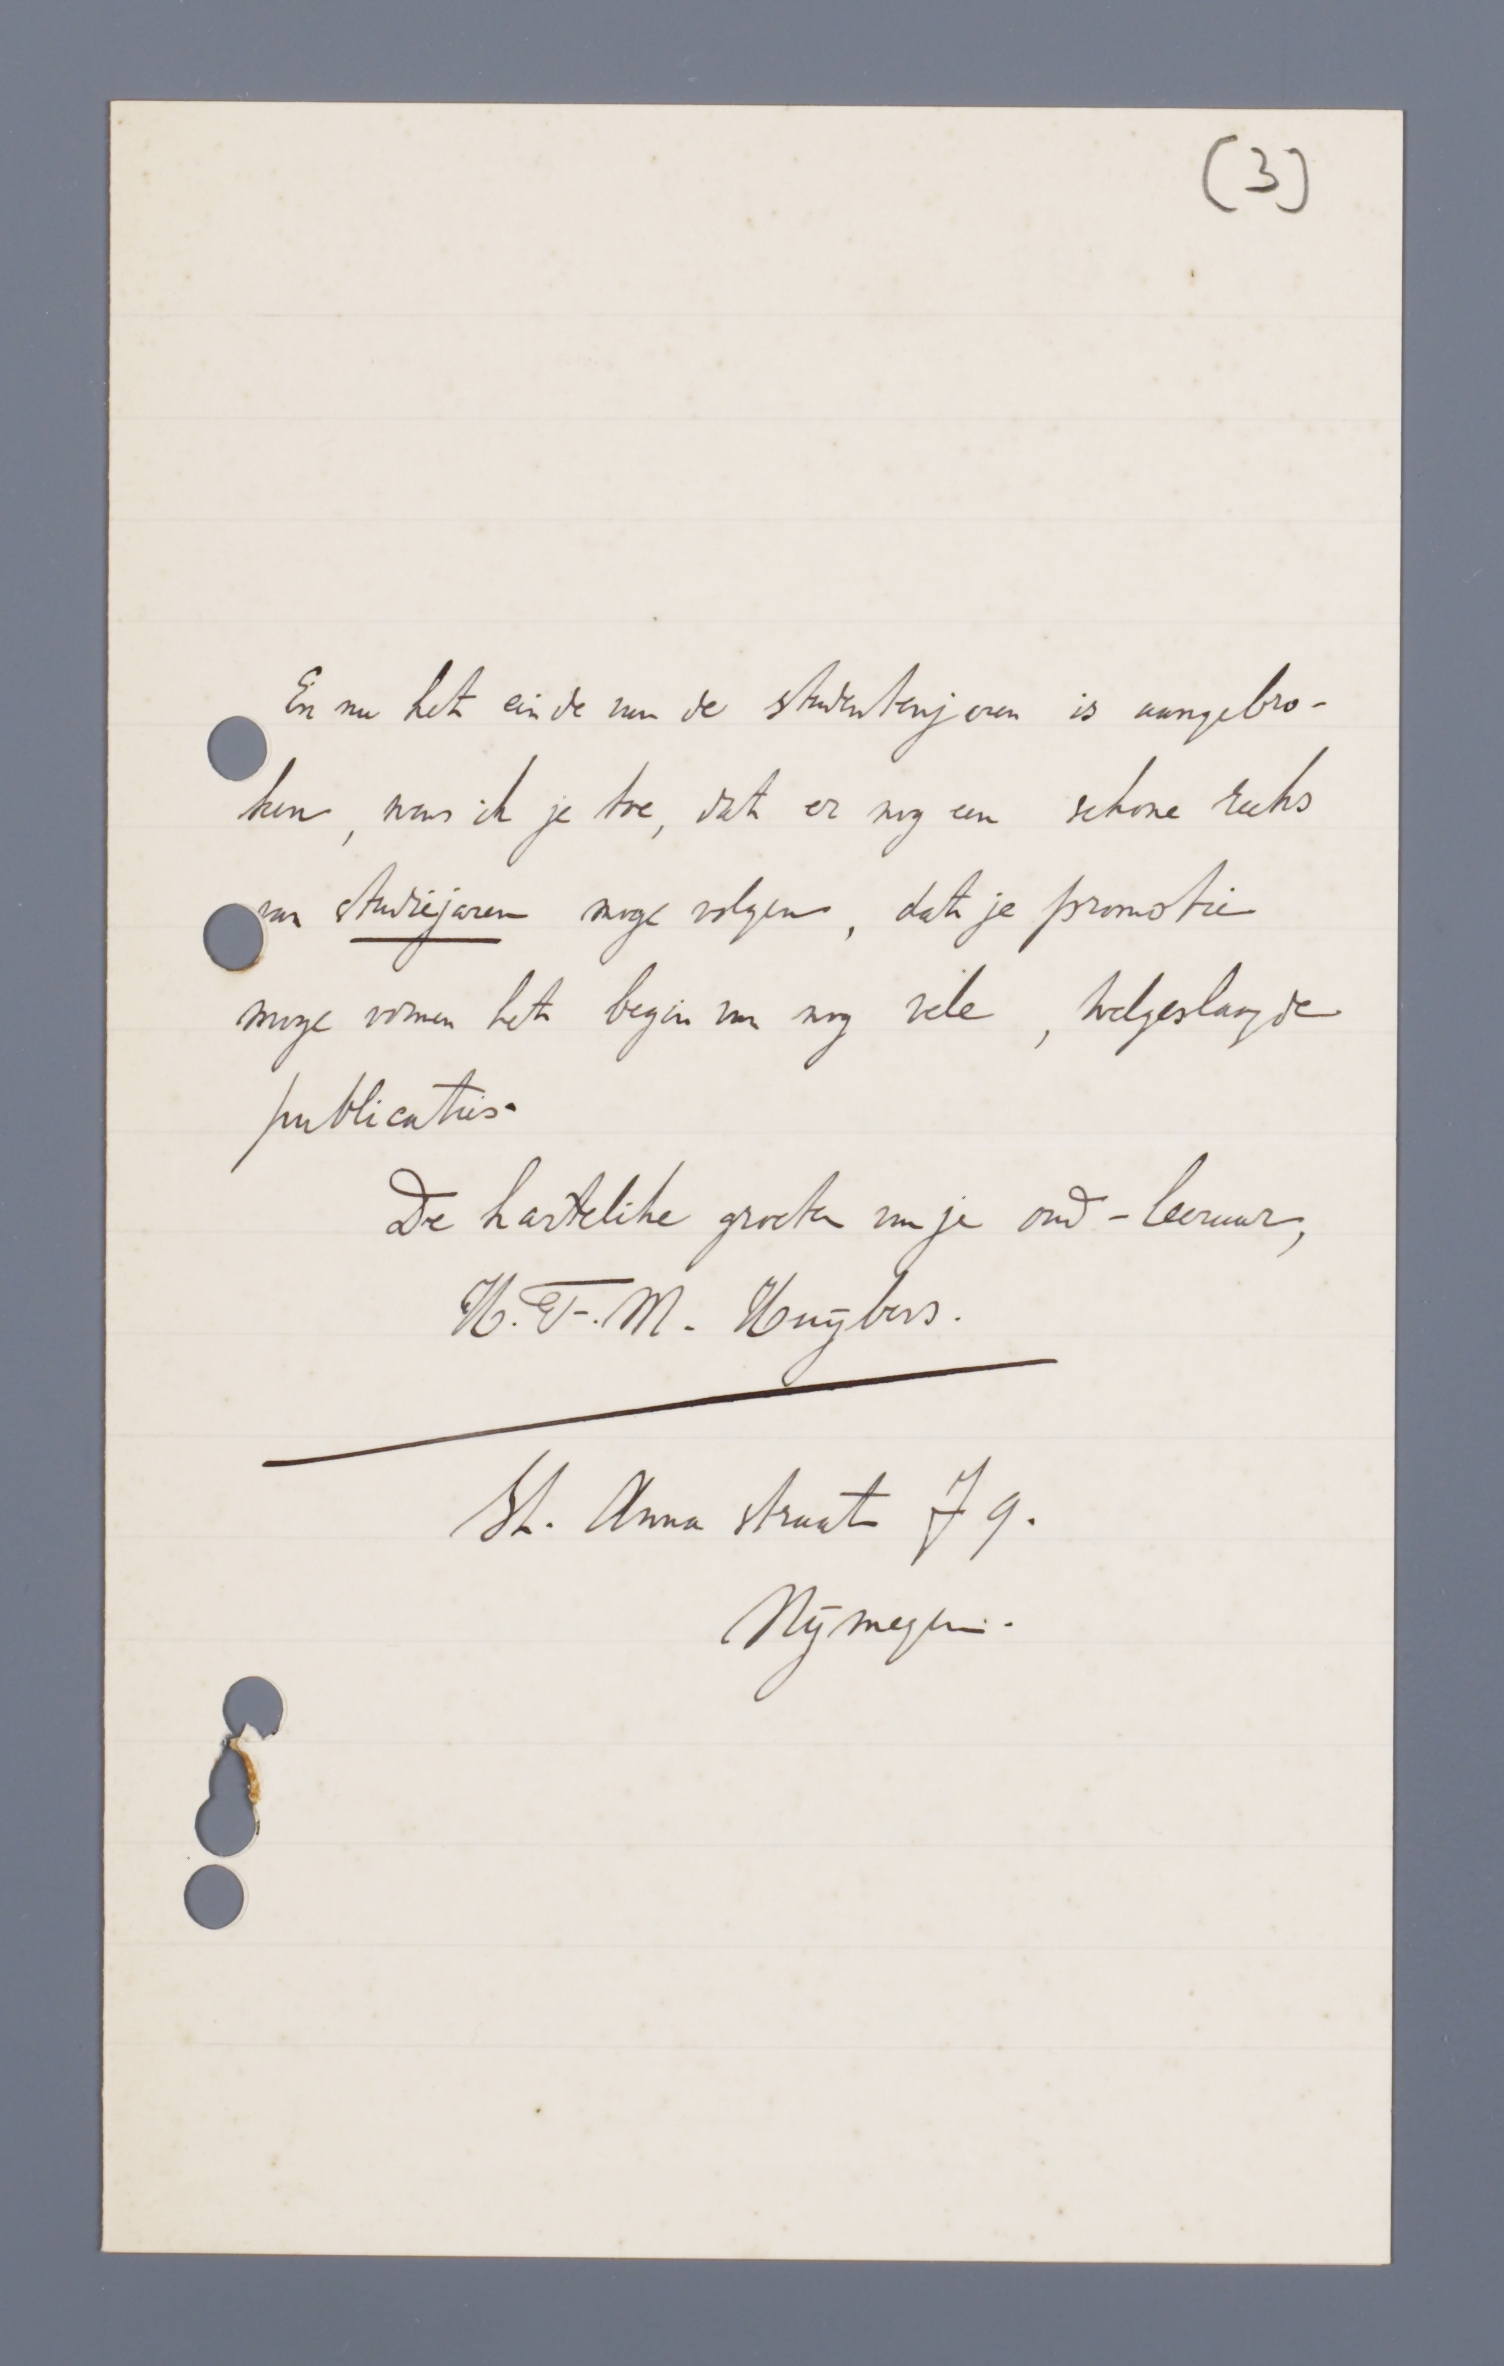 (3)
En nu het einde van de studentenjaren is aangebro-
ken, wens ik je toe, dat er nog een schone reeks
van studiejaren moge volgen, dat je promotie
moge vormen het begin van nog vele, welgeslaagde
publicaties.
De hartelike groeten van je oud-leeraar,
H.F.M. Huijbers.
St. Anna straat 79.
Nijmegen.